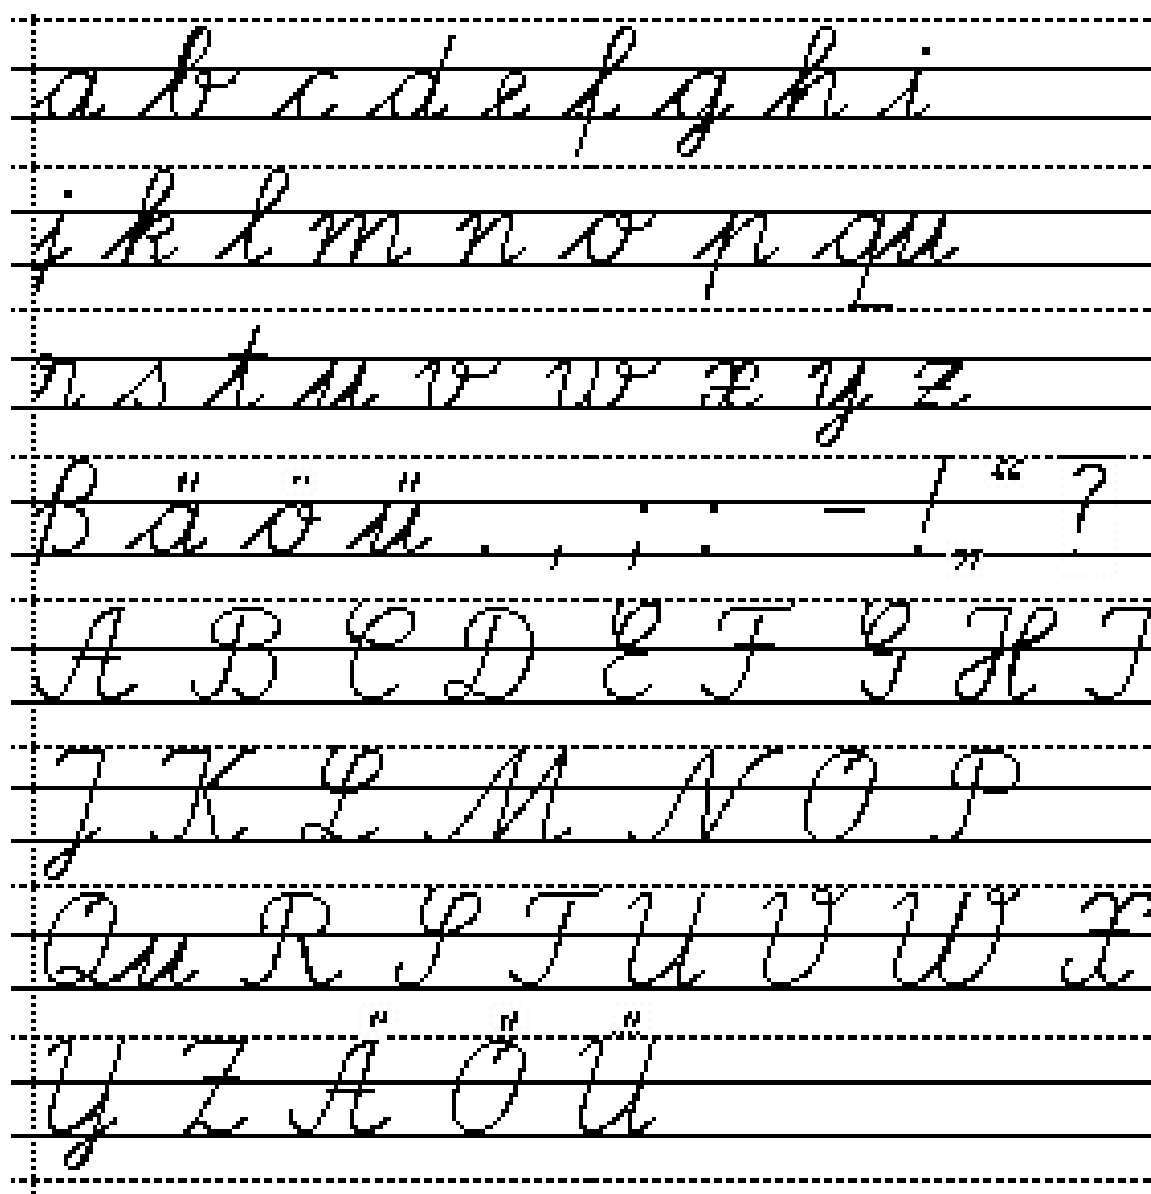 a b c d e f g h i
j k l m n o p qu
r s t u v w x y z
ß ä ö ü . , ; : - ! „ “ ?
A B C D E F G H I
J K L M N O P
Qu R S T U V W X
Y Z Ä Ö Ü